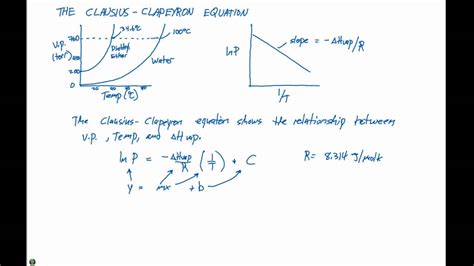 THE CLAUSIUS-CLAPEYRON EQUATION
34.6°C
100°C
V.P.
(torr)
760
200
0
Diethyl
ether
water
Temp (°C)
ln P
slope = -ΔHvap/R
1/T
The Clausius-Clapeyron equation shows the relationship between
V.P., Temp, and ΔHvap.
ln P = -ΔHvap/R (1/T) + C
R = 8.314 J/molK
y = mx + b